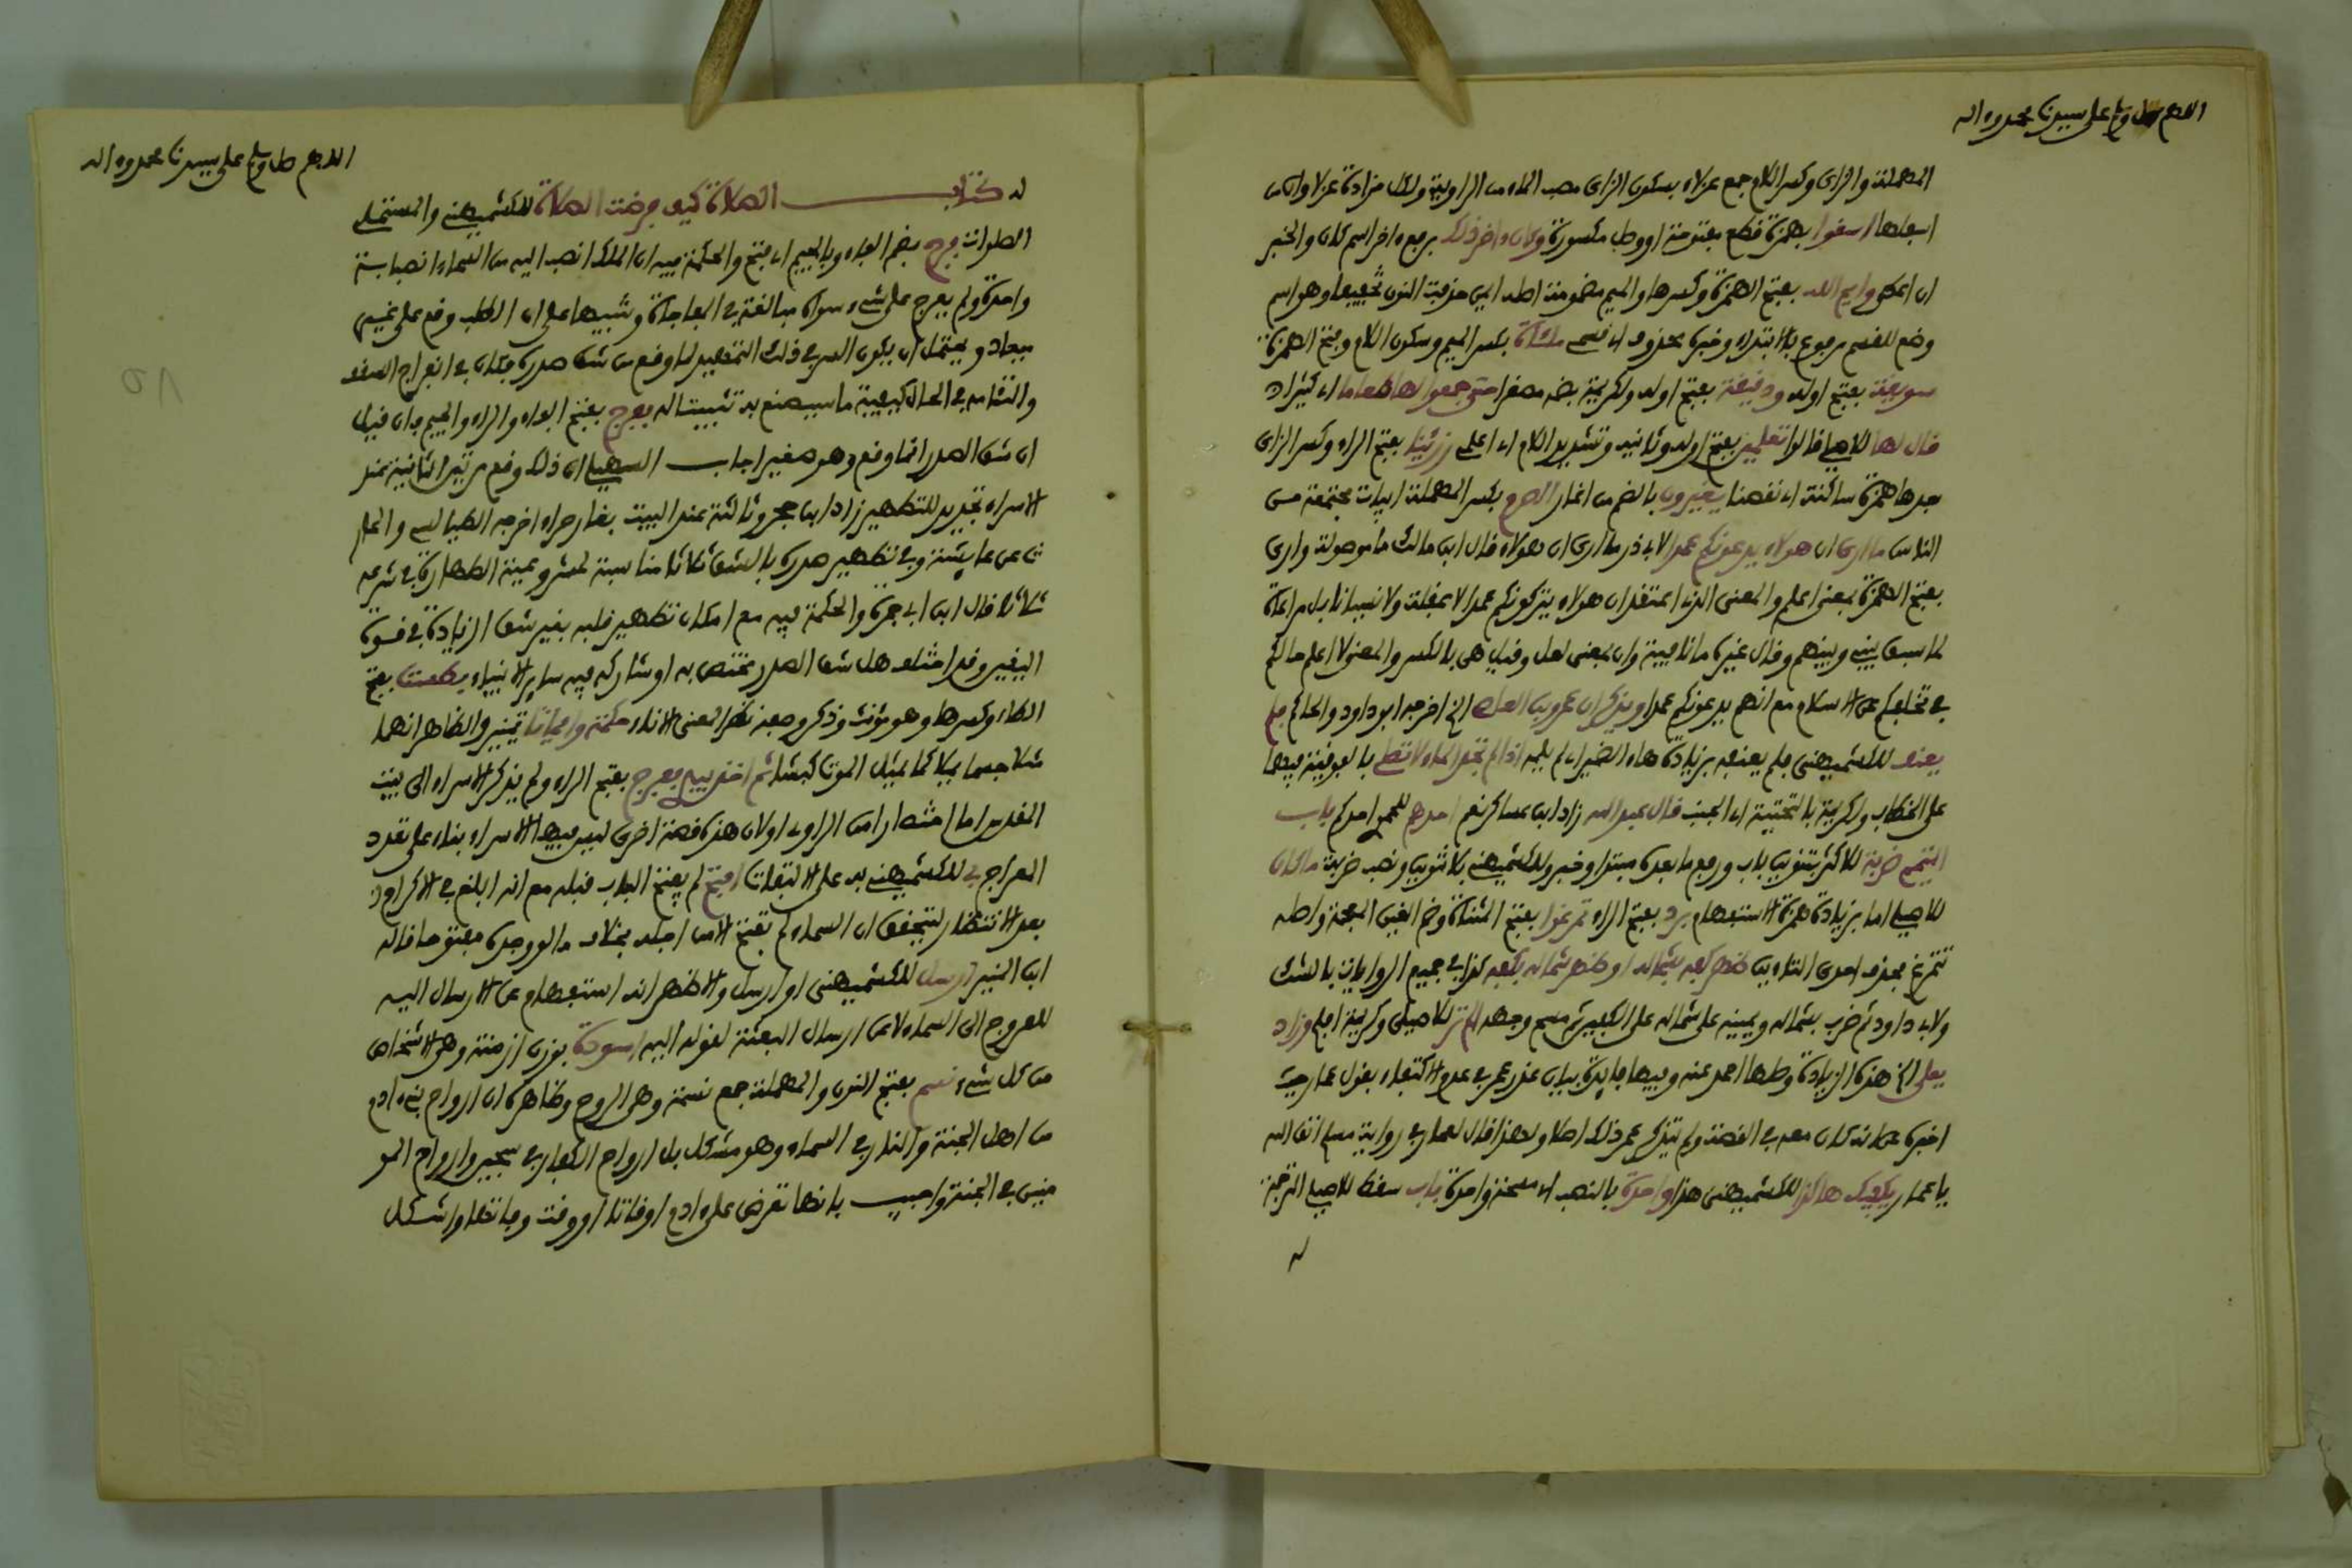 اللهم صل وسلم على سيدنا محمد وءاله
المهملة والزاى وكسر اللام جمع عزلاء بسكون الزاى مصب الماء من الراوية ولكل مزادة عزلاوان من
اسفلها اسقوا بهمزة قطع مفتوحة او وصل مكسورة وكان ءاخر ذلك برفع ءاخر اسم كان والخبر
ان اعطى وايم الله بفتح الهمزة وكسرها والميم مضمومة اصله ايمن حذفت النون تخفيفا وهو اسم
وضع للقسم مرفوع بالابتداء وخبره محذوف اى قسمى ملئة بكسر الميم وسكون اللام وفتح الهمزة
سويقة بفتح اوله ودقيقة بفتح اوله ولكريمة بضمه مصغرا حتى جمعوا لها طعاما اى كثيرا
قال لها للاصيلى قالوا تعلمين بفتح اوله وثانيه وتشديد اللام اى اعلمى رزئنا بفتح الراء وكسر الزاى
بعدها همزة ساكنة اى نقصنا يغيرون بالضم من اغار الصرم بكسر المهملة ابيات مجتمعة من
الناس ما ارى ان هولاء يدعونكم عمدا لابى ذر ما ارى ان هولاء قال ابن مالك ما موصولة وارى
بفتح الهمزة بمعنى اعلم والمعنى الذى اعتقد ان هولاء يتركونكم عمدا لا غفلة ولا نسيانا بل مراعاة
لما سبق بينى وبينهم وقال غيره ما نافية وان بمعنى لعل وقيل هى بالكسر والمعنى لا اعلم حالكم
فى تخلفكم عن الاسلام مع انهم يدعونكم عمدا ويذكر ان عمرو بن العاص الخ اخرجه ابو داود والحاكم فلم
يعنف للكشميهنى فلم يعنفه بزيادة هاء الضمير اى لم يلمه اذا لم تجد الماء لا تصلى بالفوقية فيهما
على الخطاب ولكريمة بالتحتية اى الجنب قال عبد الله زاد ابن عساكر نعم احدهم للحموى احدكم باب
التيمم ضربة للاكثر بتنوين باب ورفع ما بعده مبتدا وخبر وللكشميهنى بلا تنوين ونصب ضربة ما كان
للاصيلى اما بزيادة همزة الاستفهام برد بفتح الراء تمرغوا بفتح المثناة وضم الغين المعجمة واصله
تتمرغ بحذف احدى التاءين ظهر كفه بشماله او ظهر شماله بكفه كذا فى جميع الروايات بالشك
ولابى داود ثم ضرب بشماله ويمينه على شماله على الكفين ثم مسح وجهه الم تر للاصيلى وكريمة افلم وزاد
يعلى الخ هذه الزيادة وصلها احمد عنه وفيها فايدة بيان عذر عمر فى عدم الاكتفاء بقول عمار حيث
اخبره عما انه كان معه فى القصة ولم يتذكر عمر ذلك اصلا ولهذا قال لعمار فى رواية مسلم اتق الله
يا عمار يكفيك هاكذا للكشميهنى هذا واحدة بالنصب اى مسحة واحدة باب سقط للاصيلى الترجمة
له
اللهم صل وسلم على سيدنا محمد وءاله
له كتاب الصلاة كيف فرضت الصلاة للكشميهنى والمستملى
الصلوات فرج بضم الفاء وبالجيم اى فتح والحكمة فيه ان الملك انصب اليه من السماء انصبابة
واحدة ولم يعرج على شىء سواه مبالغة فى المفاجاة وتنبيها على ان الطلب وقع على غير
ميعاد ويحتمل ان يكون السر فى ذلك التمهيد لما وقع من شق صدره فكان فى انفراج السقف
والتئامه فى الحال كيفية ما سيصنع به تثبيتا له ففرج بفتح الفاء والراء والجيم فان قيل
ان شق الصدر انما وقع وهو صغير اجاب السهيلى ان ذلك وقع مرتين الثانية عند
الاسراء تجديد للتطهير زاد ابن حجر وثالثة عند البعث بغار حراء اخرجه الطيالسى والحار
ث عن عايشة وفى تطهير صدره بالشق ثلاثا مناسبة لمشروعية الطهارة فى شرعه
ثلاثا قال ابن ابى جمرة والحكمة فيه مع امكان تطهير قلبه بغير شق الزيادة فى قوة
اليقين وقد اختلف هل شق الصدر مختص به او شاركه فيه ساير الانبياء بطست بفتح
الطاء وكسرها وهو مؤنث وذكر وصفه نظرا لمعنى الاناء حكمة وايمانا تمييز والظاهر انهما
مثلا جسما ميلا كما يمثل الموت كبشا ثم اخذ بيدى فعرج بفتح الراء ولم يذكر الاسراء الى بيت
المقدس اما اختصارا من الراوى او لان هذه قصة اخرى ليس فيها الاسراء بناء على تعدد
المعراج بى للكشميهنى به على الالتفات افتح لم يفتح الباب قبله مع انه ابلغ فى الاكرام لان
بعد الانتظار ليتحقق ان السماء لم تفتح الا من اجله بخلاف ما لو وجده مفتوحا قاله
ابن المنير ارسل للكشميهنى او ارسل والاظهر انه استفهام عن الارسال اليه
للعروج الى السماء لا عن ارسال البعثة لقوله اليه اسودة بوزن ازمنة وهى الاشخاص
من كل شىء نسم بفتح النون والمهملة جمع نسمة وهى الروح وظاهره ان ارواح بنى ءادم
من اهل الجنة والنار فى السماء وهو مشكل بان ارواح الكفار فى سجين وارواح المو
منين فى الجنة واجيب بانها تعرض على ءادم اوقاتا او وقت وفاتها واشكل